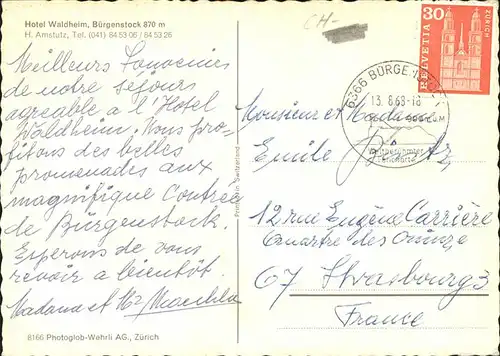 Hotel Waldheim, Bürgenstock 870 m
H. Amstutz, Tel. (041) 84 53 06 / 84 53 26
CH-
HELVETIA 30 ZÜRICH
6366 BÜRGENSTOCK
13.8.68-18
900 ü.M
Weltberühmter
Meilleurs Souvenirs
de notre séjours
agreable a l'Hotel
Waldheim. Nous pro-
fitons des belles
promenades aux
magnifique Contrée
de Bürgenstock.
Esperons de vous
revoir a bientôt.
Madame et Mr
Printed in Switzerland
Monsieur et Madame
Emile
12 rue Eugène Carrière
Quartre des Quinze
67 Strasbourg 3
France
8166 Photoglob-Wehrli AG., Zürich